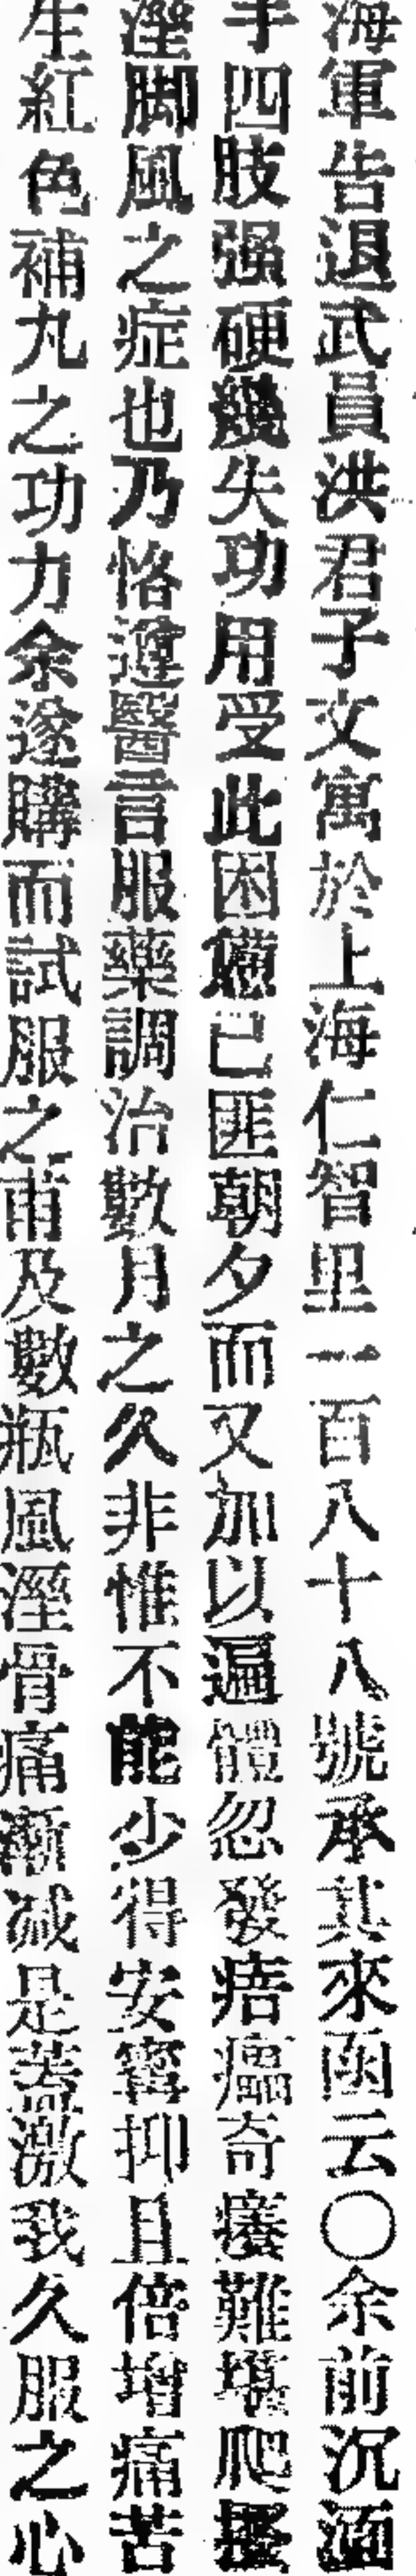 海軍告退武員洪君子文寓於上海仁智里一百八十八號承其來函云〇余前沉湎
手四肢强硬幾失功用受此困憊已匪朝夕而又加以遍體忽發痦㿔奇癢難堪爬搔
溼脚風之症也乃恪遵醫言服藥調治數月之久非惟不能少得安寗抑且倍增痛苦
生紅色補丸之功力余遂購而試服之甫及數瓶風溼骨痛漸减是蓋激我久服之心